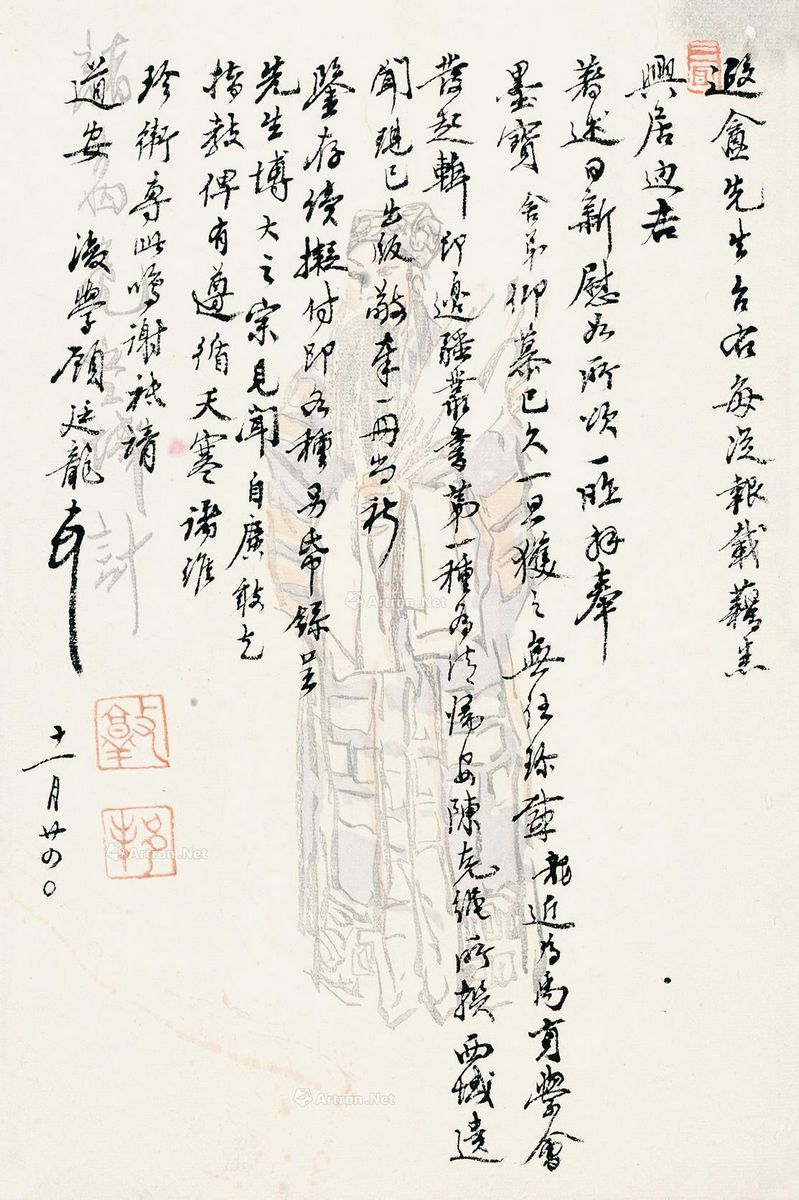 遐盦先生台右每從報載藉悉
興居迪吉
著述日新慰如所頌一昨拜奉
墨寶舍弟仰慕已久一旦獲之無任珍秘龍近為禹貢學會
發起輯印邊疆叢書第一種為清歸安陳克繩所撰西域遺
聞現已出版敬奉一冊尚祈
鑒存續擬付印各種另帋錄呈
先生博大之宗見聞自廣敢乞
指教俾有遵循天寒諸維
珍衛專此鳴謝祗請
道安 後學顧廷龍
十一月廿四日
Artron.Net
Artron.Net
Artron.Net